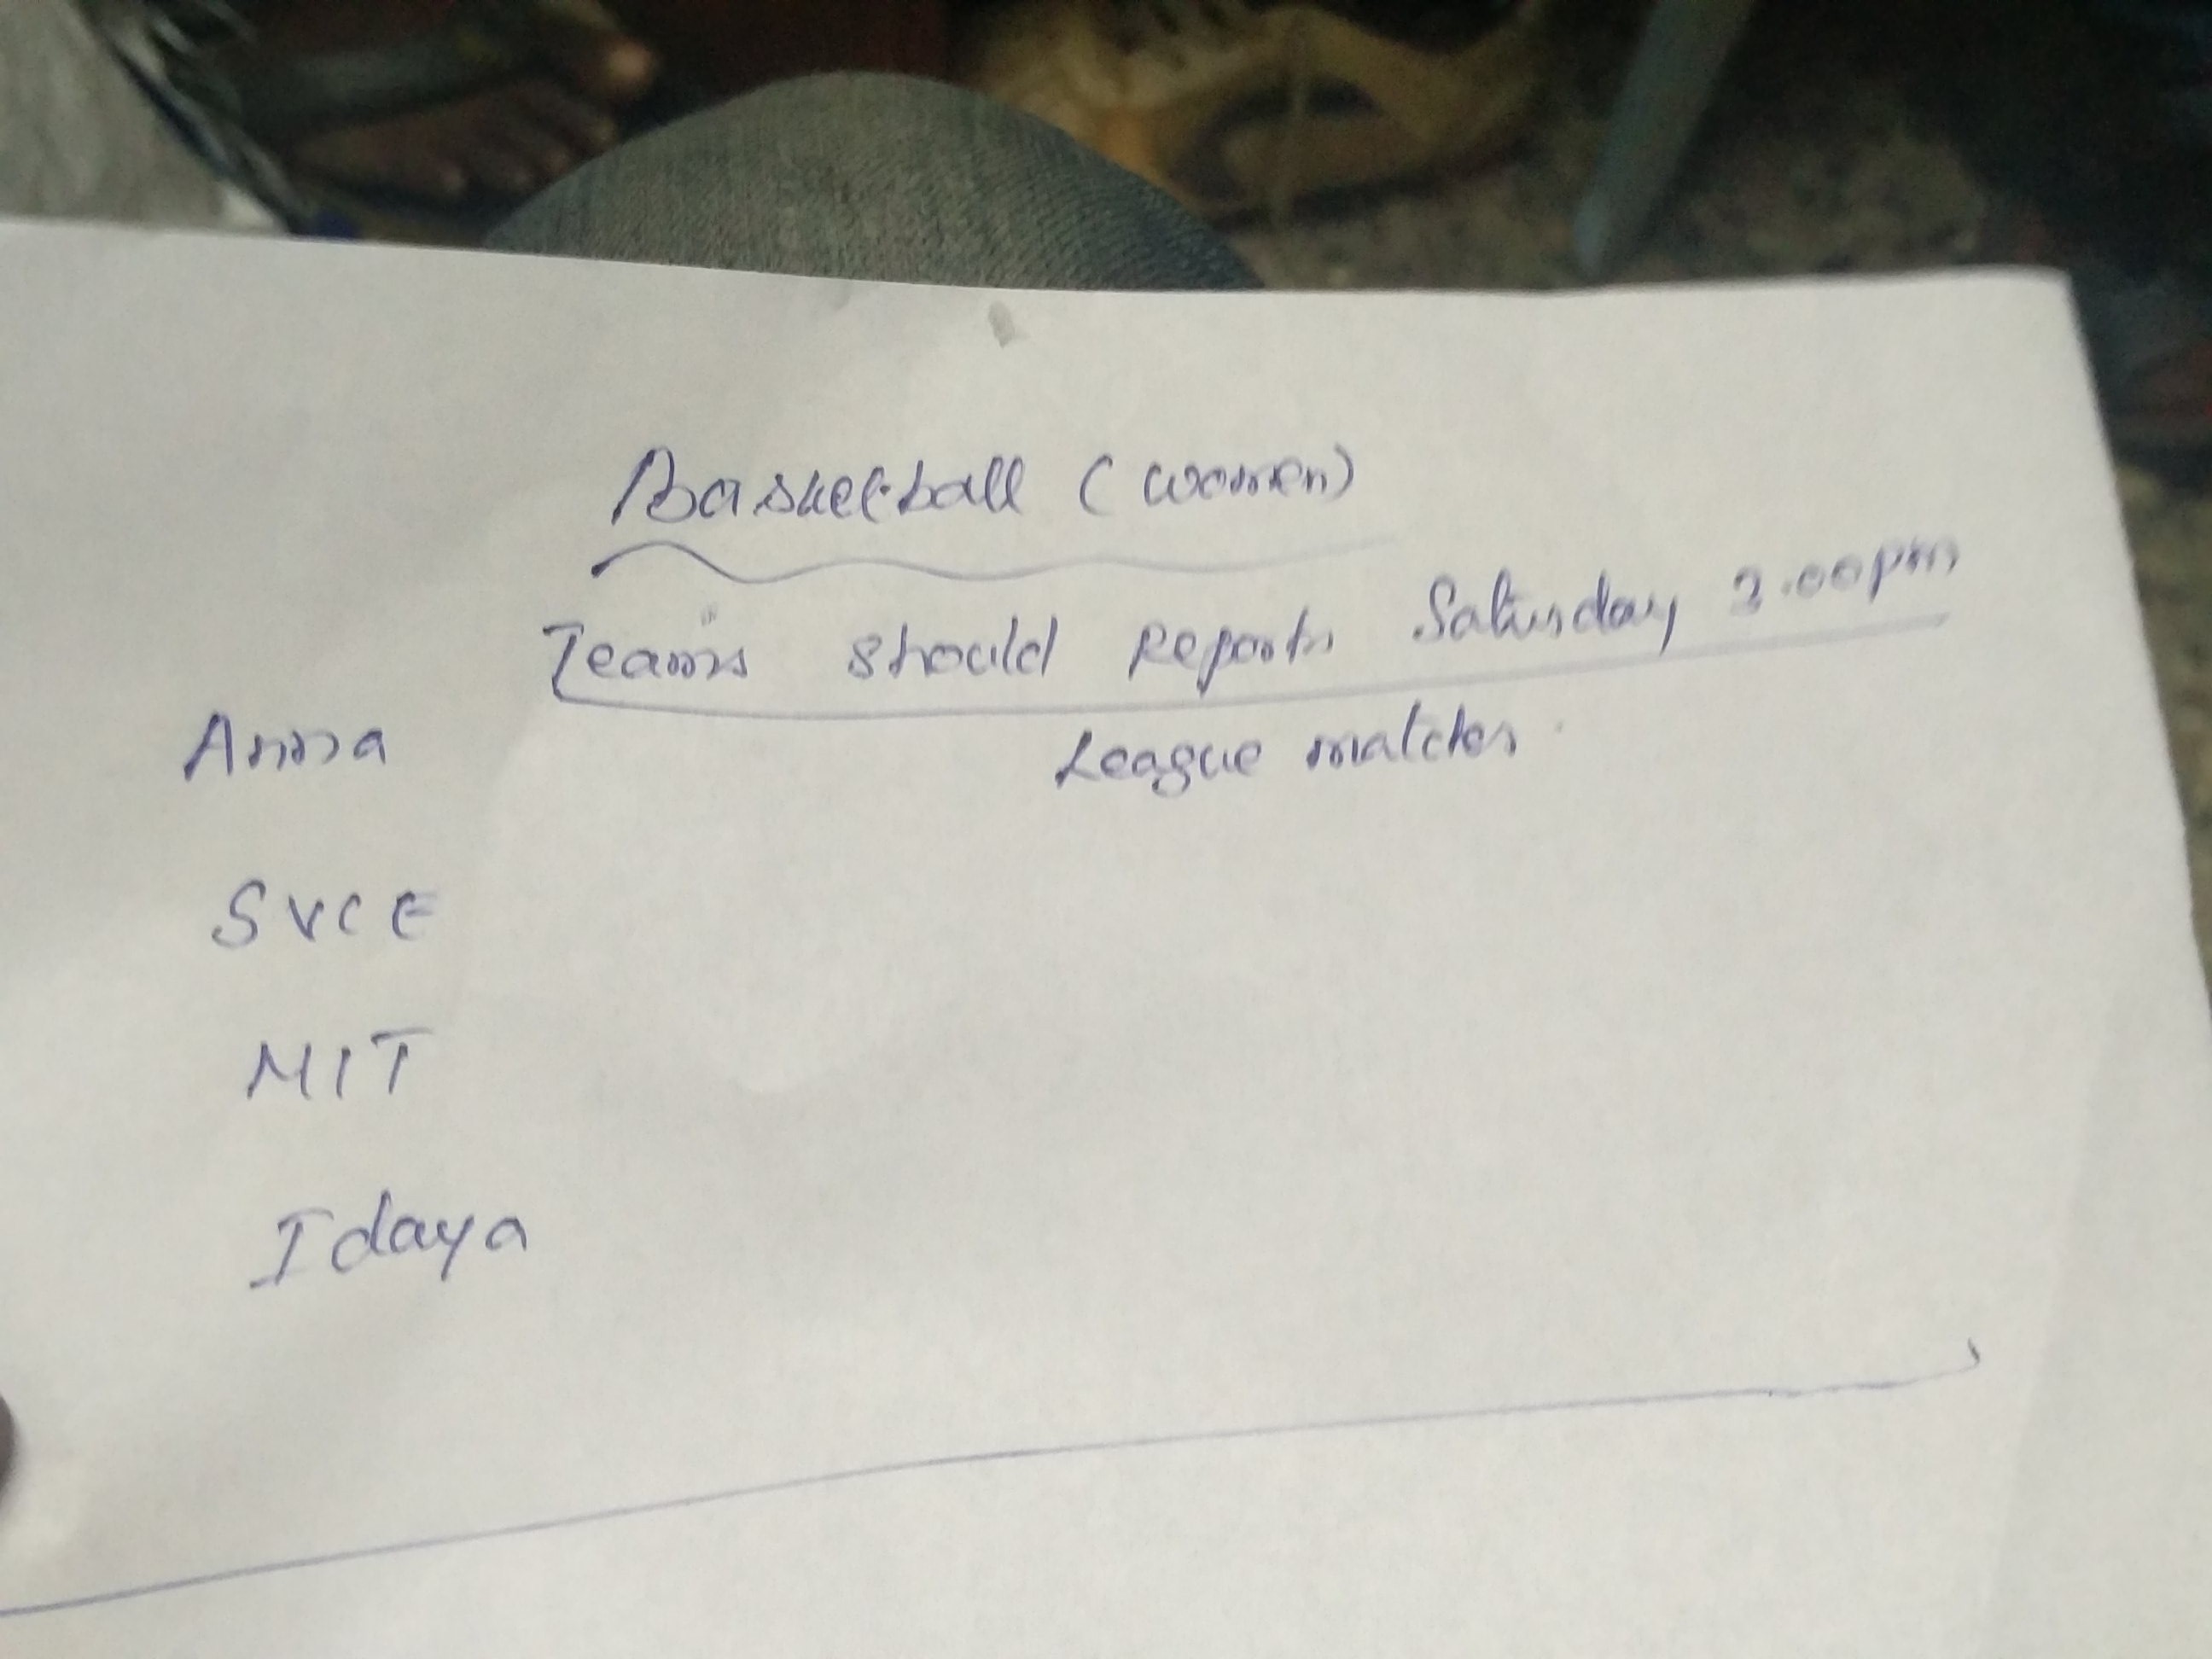 Basketball (women)
Teams should reports Saturday .00pm
Anna League matches.
SVCE
MIT
Idaya